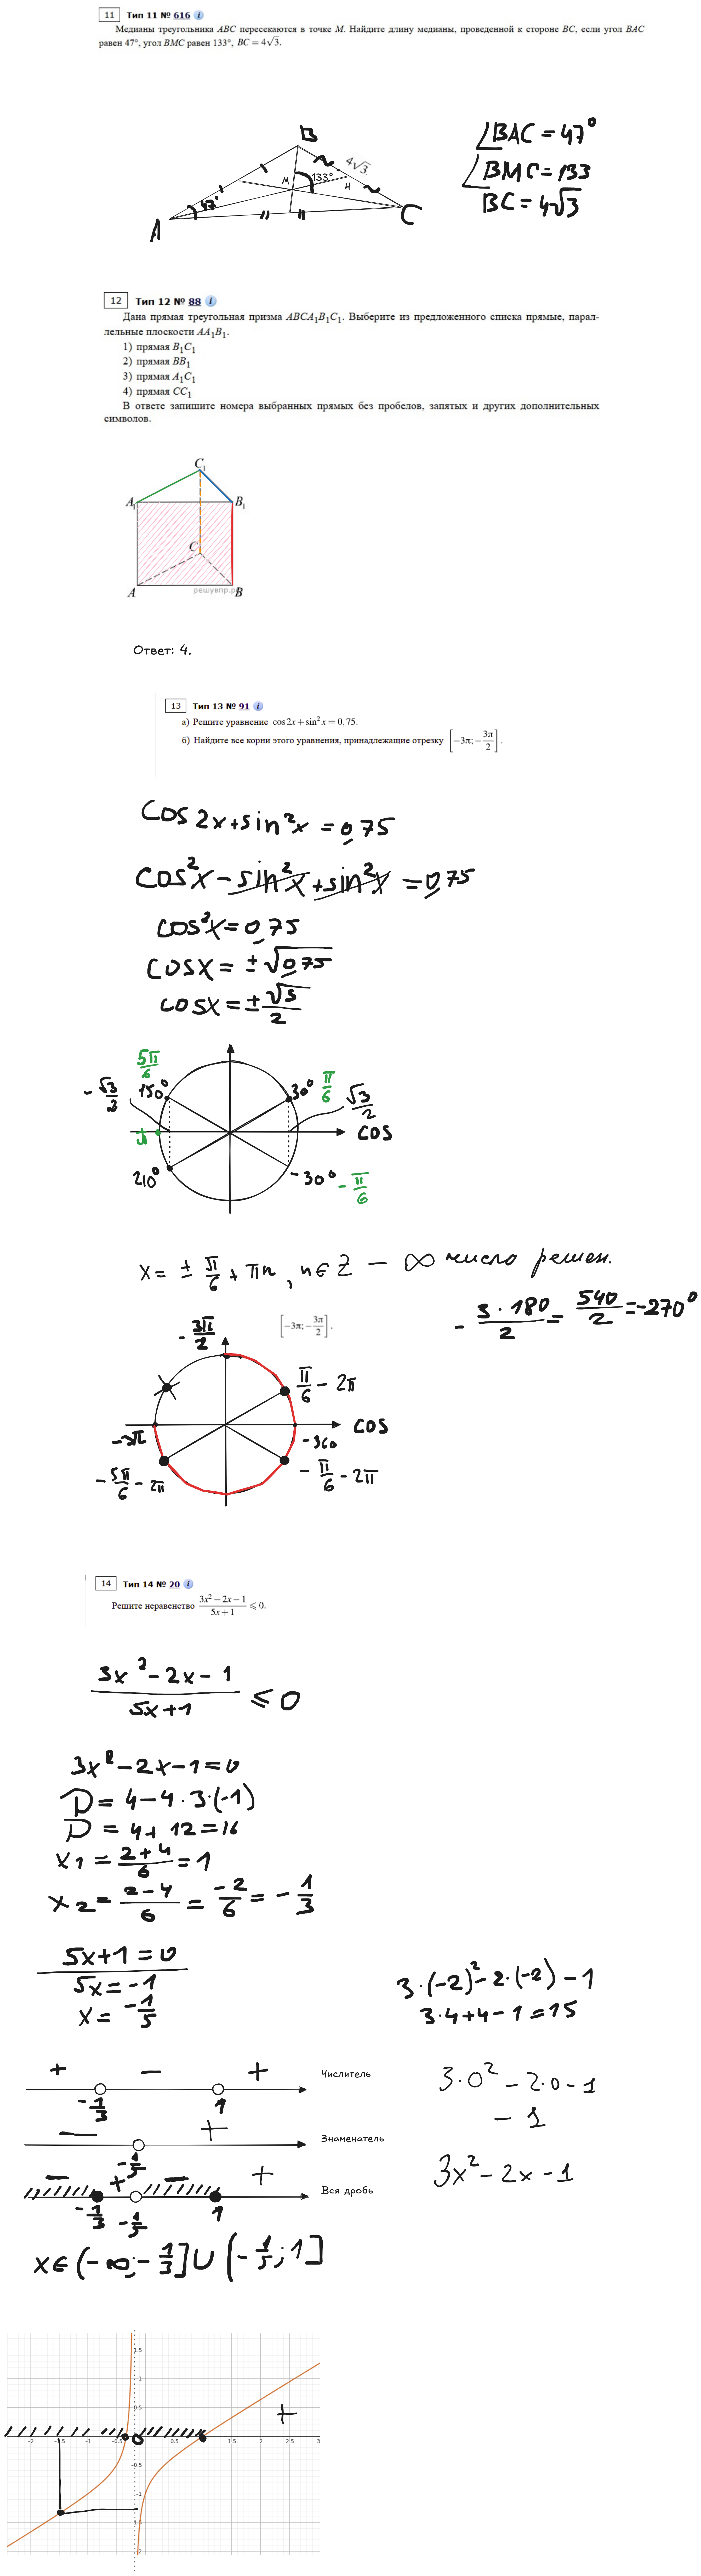 11 Тип 11 № 616 i
Медианы треугольника ABC пересекаются в точке M. Найдите длину медианы, проведенной к стороне BC, если угол BAC
равен 47°, угол BMC равен 133°, BC = 4√3.
B
∠BAC = 47°
4√3
M 133°
H
∠BMC = 133
47°
BC = 4√3
A
C
12 Тип 12 № 88 i
Дана прямая треугольная призма ABCA₁B₁C₁. Выберите из предложенного списка прямые, парал-
лельные плоскости AA₁B₁.
1) прямая B₁C₁
2) прямая BB₁
3) прямая A₁C₁
4) прямая CC₁
В ответе запишите номера выбранных прямых без пробелов, запятых и других дополнительных
символов.
C₁
A₁ B₁
C
A решувпр.р B
Ответ: 4.
13 Тип 13 № 91 i
а) Решите уравнение cos 2x + sin² x = 0,75.
б) Найдите все корни этого уравнения, принадлежащие отрезку [−3π; −3π/2].
cos 2x + sin²x = 0,75
cos²x − sin²x + sin²x = 0,75
cos²x = 0,75
cosx = ±√0,75
cosx = ± √3/2
5π/6
−√3/2 150° 30° π/6 √3/2
π cos
210° −30° −π/6
x = ± π/6 + πn, n∈Z — ∞ число решен.
− 3·180/2 = 540/2 = −270°
−3π/2 [−3π; −3π/2].
π/6 − 2π
cos
−3π −360
−5π/6 − 2π −π/6 − 2π
14 Тип 14 № 20 i
Решите неравенство (3x² − 2x − 1)/(5x + 1) ⩽ 0.
(3x² − 2x − 1)/(5x+1) ≤ 0
3x² − 2x − 1 = 0
D = 4 − 4·3·(−1)
D = 4 + 12 = 16
x₁ = (2+4)/6 = 1
x₂ = (2−4)/6 = −2/6 = −1/3
5x+1 = 0
5x = −1
x = −1/5
3·(−2)² − 2·(−2) − 1
3·4 + 4 − 1 = 15
+ − + Числитель
−1/3 1
3·0² − 2·0 − 1
− 1
− + Знаменатель
−1/5
3x² − 2x − 1
− + − + Вся дробь
−1/3 −1/5 1
x∈(−∞; −1/3] ∪ (−1/5; 1]
1.5
1
0.5
+
-2 -1.5 -1 -0.5 0 0.5 1 1.5 2 2.5 3
-0.5
-1
-1.5
-2